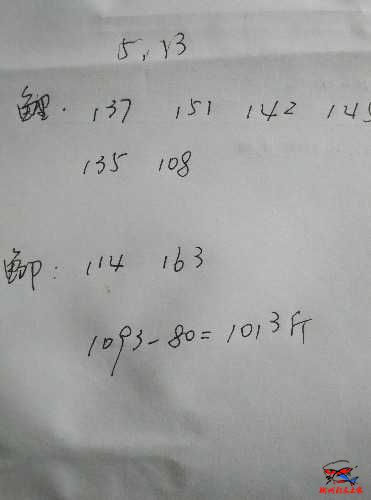 5,13
鲤. 137 151 142
135 108
鲫: 114 163
1093-80=1013斤